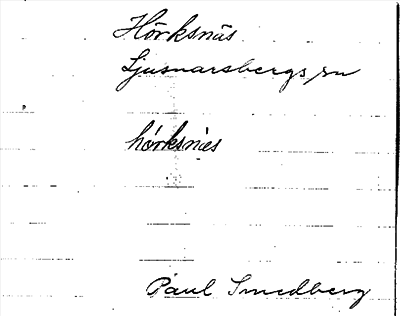 Hörksnäs
Ljusnarsbergs sn
hörksnäs
Paul Smedberg